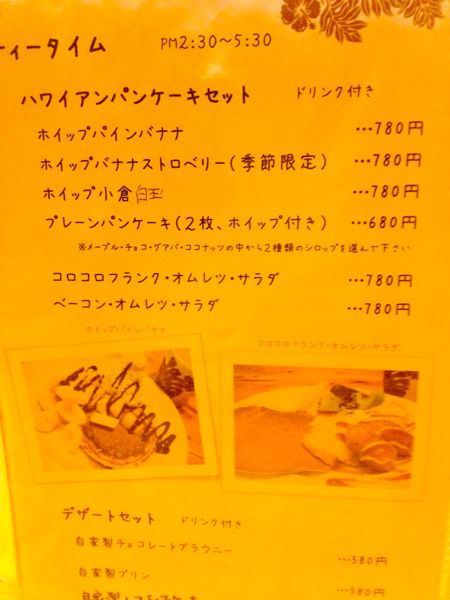 ィータイム PM2:30~5:30
ハワイアンパンケーキセット ドリンク付き
ホイップパインバナナ …780円
ホイップバナナストロベリー(季節限定) …780円
ホイップ小倉白玉 …780円
プレーンパンケーキ(2枚、ホイップ付き) …680円
※メープル・チョコ・グアバ・ココナッツの中から2種類のシロップを選んで下さい
コロコロフランク・オムレツ・サラダ …780円
ベーコン・オムレツ・サラダ …780円
ホイップパインバナナ
コロコロフランク・オムレツ・サラダ
デザートセット ドリンク付き
自家製チョコレートブラウニー …580円
自家製プリン
自家製 …580円